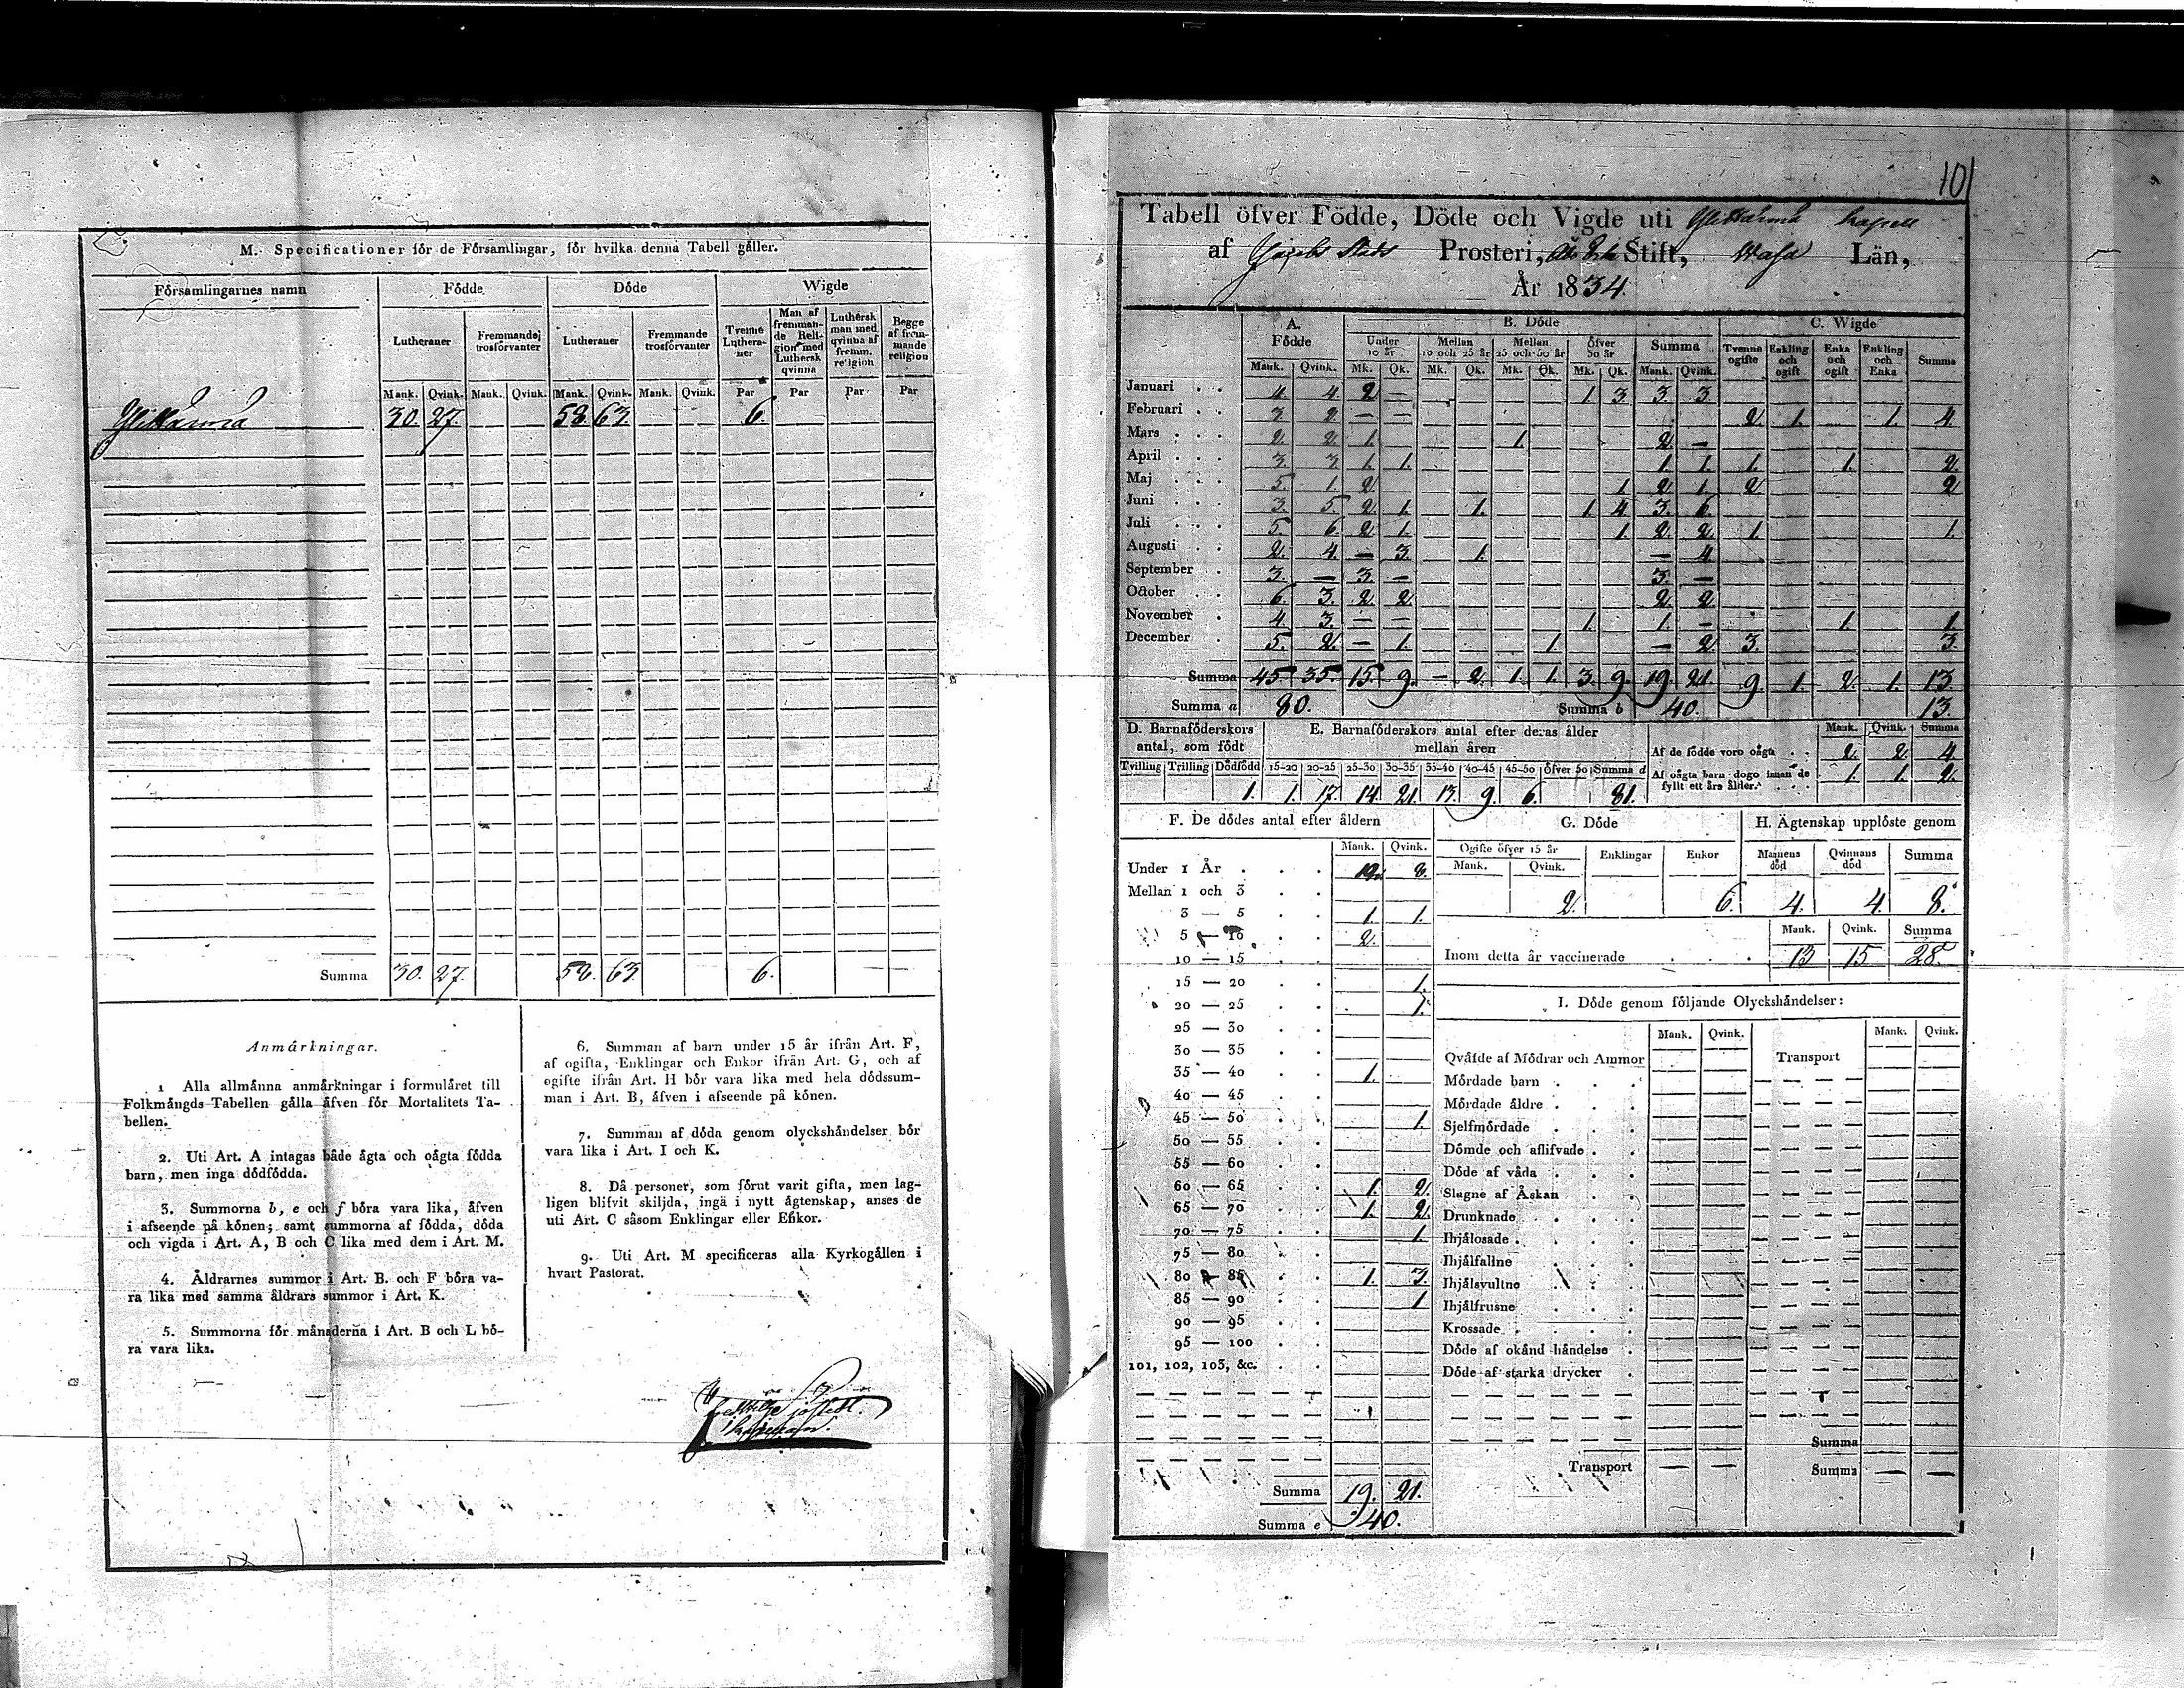 M. Specificationer för de Församlingar, för hvilka denna Tabell gäller.
Församlingarnes namn Födde Döde Wigde
Lutheraner Fremmande trosförvanter Lutheraner Fremmande trosförvanter Tvenne Lutheraner Man af fremmande Religion med Luthersk qvinna Luthersk man med qvinna af fremm. religion Begge af fremmande religion
Mank. Qvink. Mank. Qvink. Mank. Qvink. Mank. Qvink. Par Par Par Par
30. 27. 58. 63. 6.
Summa 30. 27. 58. 63. 6.
Anmärkningar.
1 Alla allmänna anmärkningar i formuläret till
Folkmängds Tabellen gälla äfven för Mortalitets Ta-
bellen.
2. Uti Art. A intagas både ägta och oägta födda
barn, men inga dödfödda.
3. Summorna b, e och f böra vara lika, äfven
i afseende på könen; samt summorna af födda, döda
och vigda i Art. A, B och C lika med dem i Art. M.
4. Åldrarnes summor i Art. B. och F böra va-
ra lika med samma åldrars summor i Art. K.
5. Summorna för månaderna i Art. B och L bö-
ra vara lika.
6. Summan af barn under 15 år ifrån Art. F,
af ogifta, Enklingar och Enkor ifrån Art. G, och af
ogifte ifrån Art. H bör vara lika med hela dödssum-
man i Art. B, äfven i afseende på könen.
7. Summan af döda genom olyckshändelser bör
vara lika i Art. I och K.
8. Då personer, som förut varit gifta, men lag-
ligen blifvit skiljda, ingå i nytt ägtenskap, anses de
uti Art. C såsom Enklingar eller Enkor.
9. Uti Art. M specificeras alla Kyrkogällen i
hvart Pastorat.
101
Tabell öfver Födde, Döde och Vigde uti
af Jacobs Stads Prosteri, Stift, Wasa Län,
År 1834.
A. Födde B. Döde C. Wigde
Under 10 år Mellan 10 och 25 år Mellan 25 och 50 år Öfver 50 år Summa Tvenne ogifte Enkling och ogift Enka och ogift Enkling och Enka Summa
Mank. Qvink. Mk. Qk. Mk. Qk. Mk. Qk. Mk. Qk. Mank. Qvink.
Januari 4. 4. 2 — 1 3 3 3
Februari 3. 2 — — 2. 1. 1. 4.
Mars 2. 2. 1. 1. 2 —
April 3. 3 1. 1. 1. 1. 1. 1. 2.
Maj 5. 1. 2 1. 2. 1. 2. 2
Juni 3. 5 2 1. 1. 1. 4 3. 6.
Juli 5. 6 2 1. 1. 2. 2. 1. 1.
Augusti 2. 4. — 3. 1. — 4
September 3. — 3. — 3. —
October 6 3. 2 2. 2. 2
November 4. 3. — — 1. 1. — 1. 1.
December 5. 2. — 1. 1. — 2 3. 3.
Summa 45. 35. 15. 9. — 2. 1. 1. 3. 9. 19 21. 9. 1. 2. 1. 13.
Summa a 80. Summa b 40. 13.
D. Barnaföderskors antal, som födt
Tvilling Trilling Dödfödd
1.
E. Barnaföderskors antal efter deras ålder mellan åren
15-20 20-25 25-30 30-35 35-40 40-45 45-50 öfver 50 Summa d
1. 17. 14. 21. 13. 9. 6. 81.
Mank. Qvink. Summa
Af de födde voro oägta 2. 2. 4.
Af oägta barn dogo innan de fyllt ett års ålder. 1. 1. 2.
F. De dödes antal efter åldern
Mank. Qvink.
Under 1 År 12. 8.
Mellan 1 och 3
3 — 5 1. 1.
5 — 10 2.
10 — 15
15 — 20 1.
20 — 25 1.
25 — 30
30 — 35
35 — 40 1.
40 — 45
45 — 50 1.
50 — 55
55 — 60
60 — 65 1. 2.
65 — 70 1. 2.
70 — 75 1.
75 — 80
80 — 85 1. 3.
85 — 90 1
90 — 95
95 — 100
101, 102, 103, &c.
Summa 19. 21.
Summa e 40.
G. Döde
Ogifte öfver 15 år Enklingar Enkor
Mank. Qvink.
2. 6.
H. Ägtenskap upplöste genom
Mannens död Qvinnans död Summa
4. 4. 8.
Mank. Qvink. Summa
Inom detta år vaccinerade 13 15 28.
I. Döde genom följande Olyckshändelser:
Mank. Qvink. Mank. Qvink.
Qväfde af Mödrar och Ammor Transport
Mördade barn
Mördade äldre
Sjelfmördade
Dömde och aflifvade
Döde af våda
Slagne af Åskan
Drunknade
Ihjälosade
Ihjälfallne
Ihjälsvultne
Ihjälfrusne
Krossade
Döde af okänd händelse
Döde af starka drycker
Summa
Transport — — Summa — —